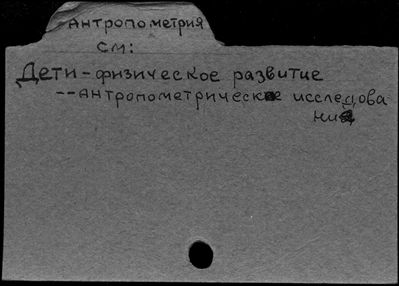 Антропометрия
см:
Дети - физическое развитие
-- антропометрические исследова
ния